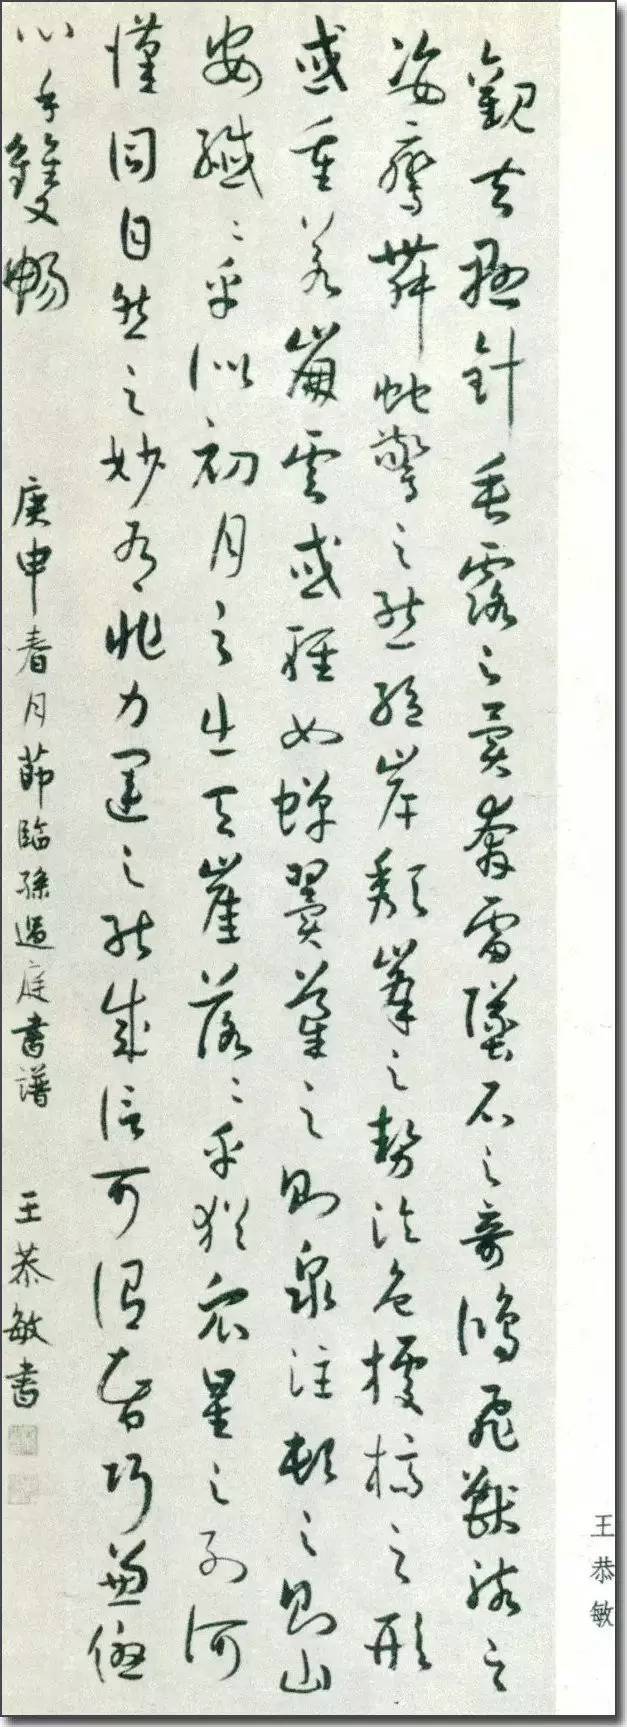 觀夫懸針垂露之異奔雷墜石之奇鴻飛獸駭之
姿鸞舞蛇驚之態絕岸頹峯之勢臨危據槁之形
或重若崩雲或輕如蟬翼導之則泉注頓之則山
安纖〻乎似初月之出天崖落〻乎猶衆星之列河
漢同自然之妙有非力運之能成信可謂智巧兼優
心手雙暢
庚申春月節臨孫過庭書譜 王恭敏書
王恭敏